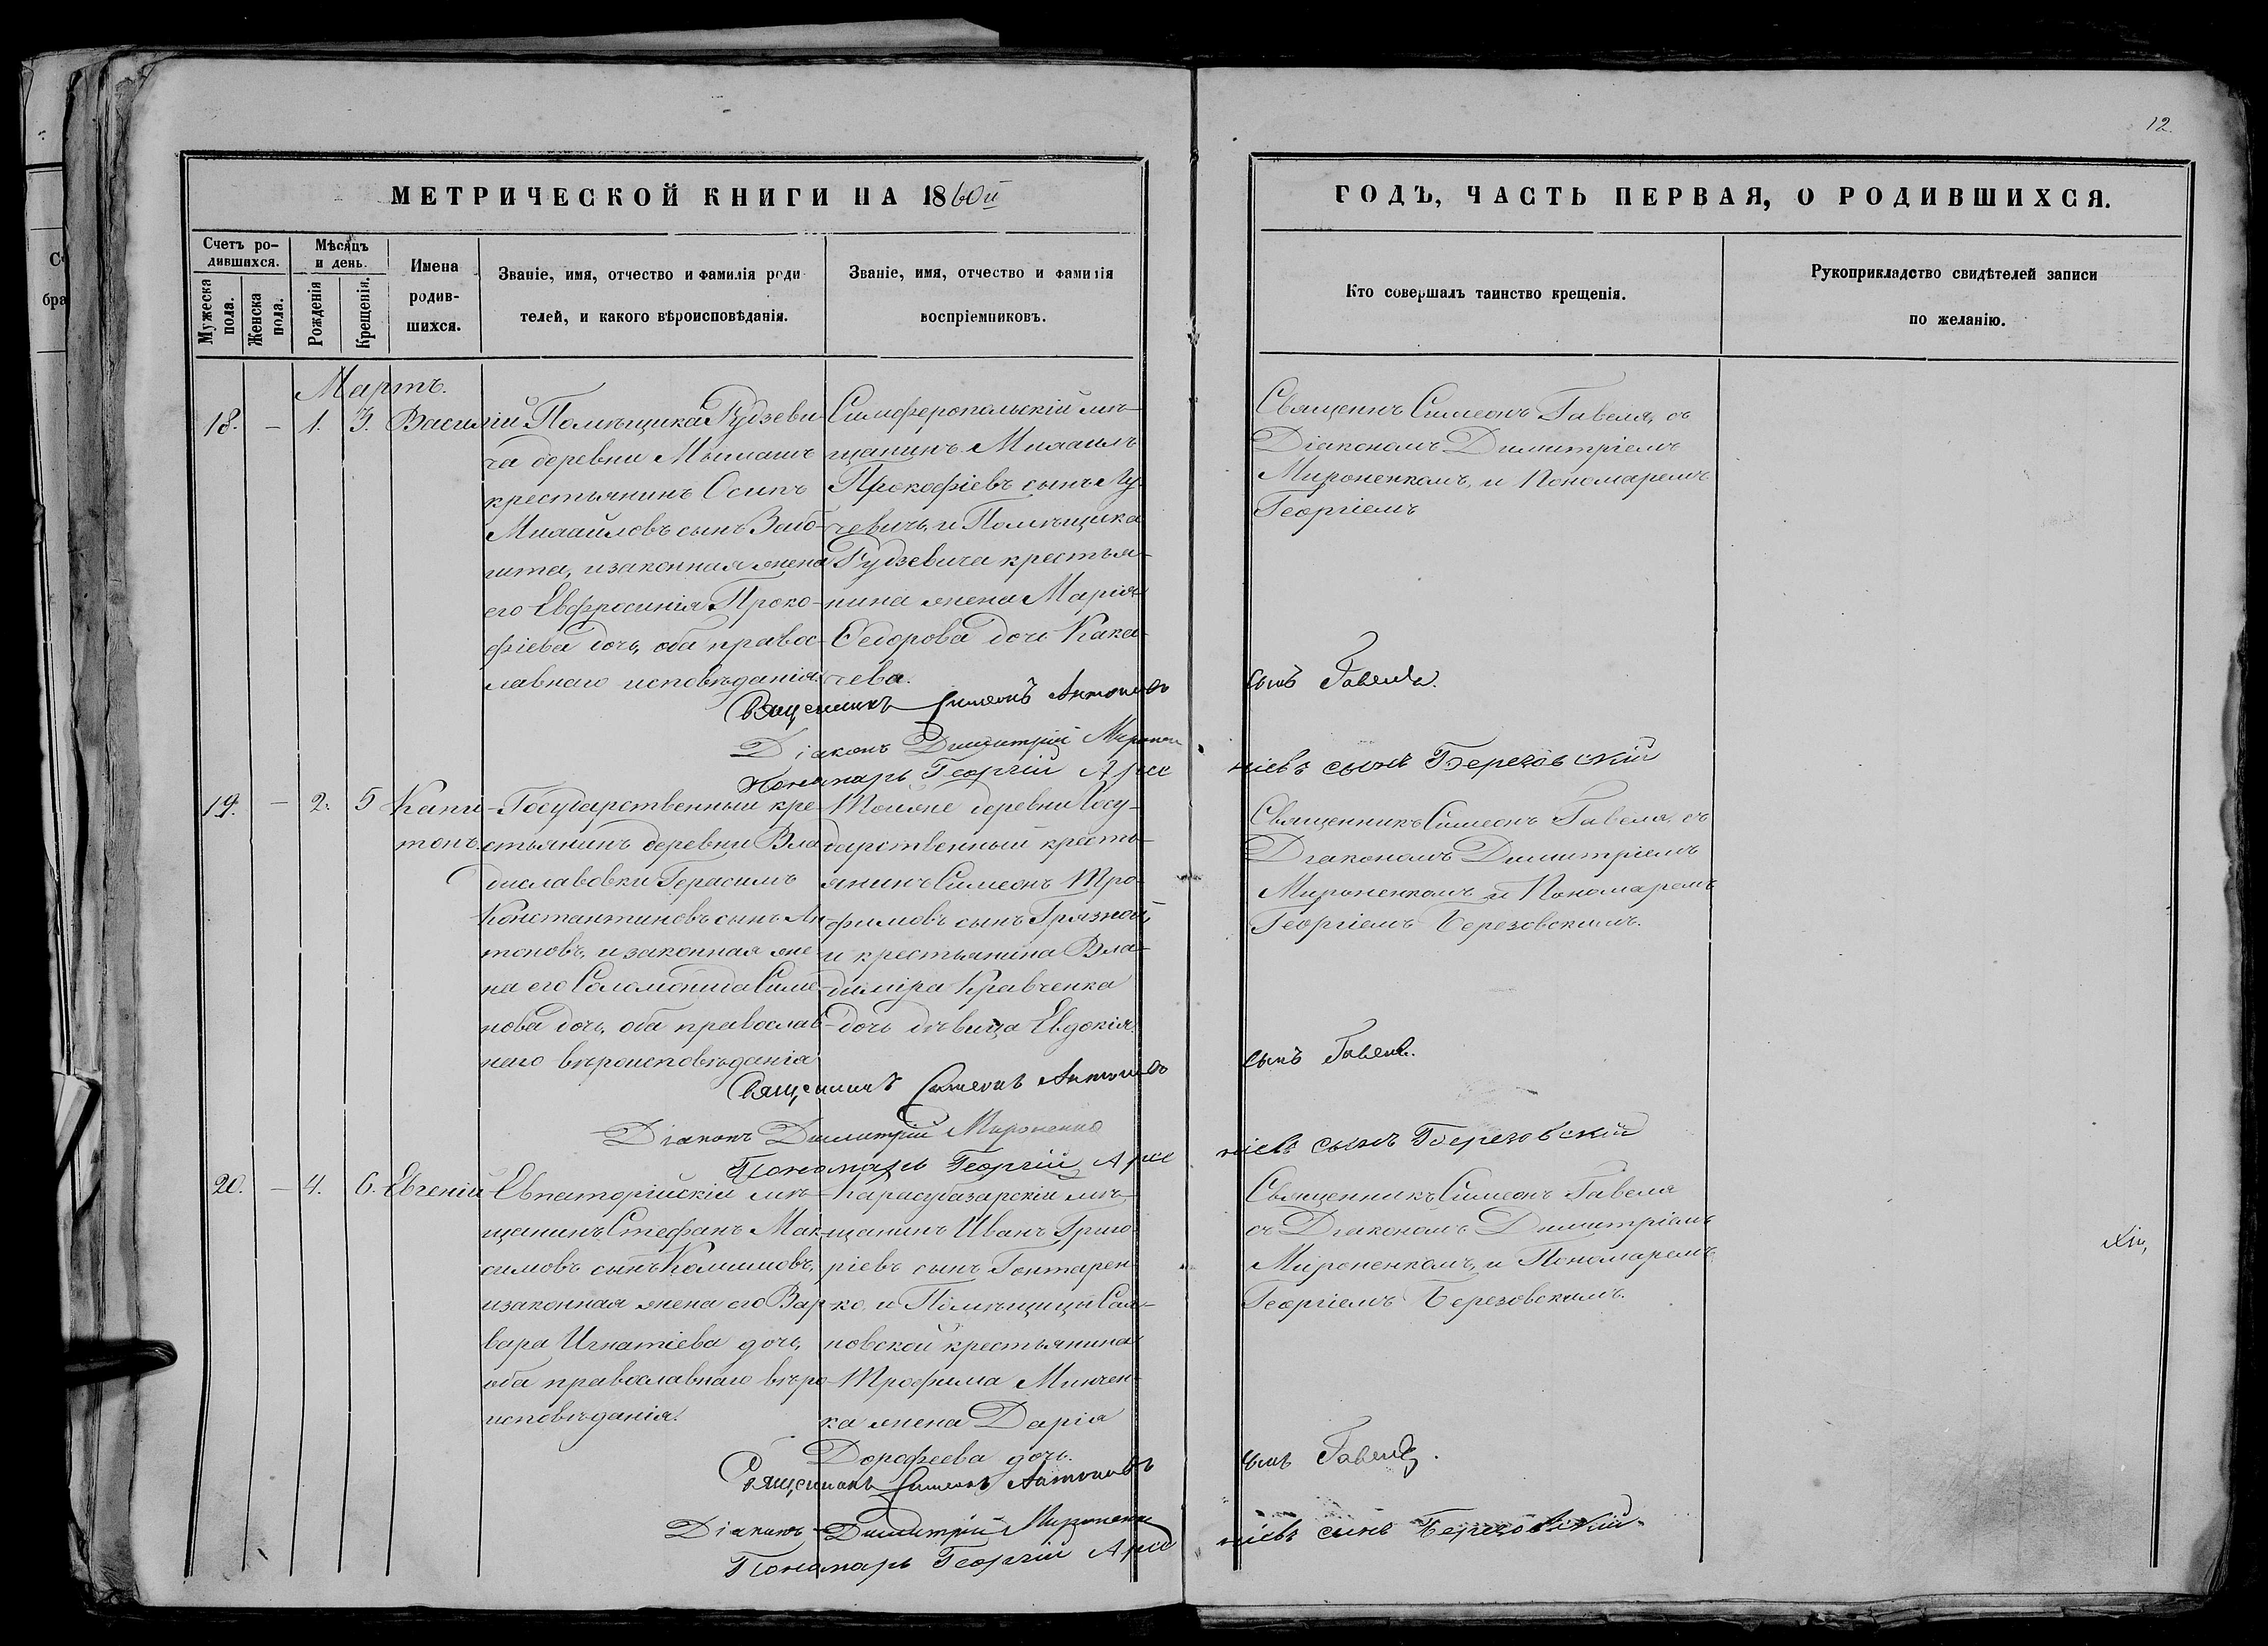 12.
МЕТРИЧЕСКОЙ КНИГИ НА 1860й
ГОДЪ, ЧАСТЬ ПЕРВАЯ, О РОДИВШИХСЯ.
Счетъ ро-
дившихся.
Мужеска
пола.
Женска
пола.
Мѣсяцъ
и день.
Рожденія
Крещенія.
Имена
родив-
шихся.
Званіе, имя, отчество и фамилія роди
телей, и какого вѣроисповѣданія.
Званіе, имя, отчество и фамилія
воспріемниковъ.
Кто совершалъ таинство крещенія.
Рукоприкладство свидѣтелей записи
по желанію.
Мартъ.
18. – 1. 3. Василій
Помѣщика Рудзеви-
ча деревни
крестьянинъ Осипъ
Михайловъ сынъ
изаконная жена
его Евфросинія Проко-
фіева дочь, оба правос-
лавнаго исповѣданія.
Симферопольскій мѣ-
щанинъ Михаилъ
Прокофіевъ сынъ Лу-
чевичъ, и Помѣщика
Рудзевича крестья-
нина жена Марія
Ѳедорова дочь
чева.
Священникъ Симеонъ Гавеля, съ
Діакономъ Димитріемъ
Мироненкомъ, и Пономаремъ
Георгіемъ
Священникъ Симеонъ Антоновъ сынъ Гавеля.
Діаконъ Димитрій
Пономарь Георгій Арсеніевъ сынъ Березовскій
19. – 2. 5 Капи-
тонъ.
Государственный кре-
стьянинъ деревни Вла-
диславовки Герасимъ
Константиновъ сынъ Ан-
тоновъ, изаконная же-
на его Соломонида Симе-
нова дочь, оба православ-
наго вѣроисповѣданія
Тойже деревни Госу-
дарственный кресть-
янинъ Симеонъ Тро-
фимовъ сынъ Грязной,
и крестьянина Вла-
диміра Кравченка
дочь дѣвица Евдокія.
Священникъ Симеонъ Гавеля, съ
Діакономъ Димитріемъ
Мироненкомъ и Пономаремъ
Георгіемъ Березовскимъ.
Священникъ Симеонъ Антоновъ сынъ Гавеля.
Діаконъ Димитрій Мироненко
Пономарь Георгій Арсеніевъ сынъ Березовскій
20. – 4. 6. Евгеній
Евпаторійскій мѣ-
щанинъ Стефанъ Мак-
симовъ сынъ Калимовъ,
изаконная жена его Вар-
вара Игнатіева дочь,
оба православнаго вѣро-
исповѣданія.
Карасубазарскій мѣ-
щанинъ Иванъ Григо-
ріевъ сынъ Гонтарен-
ко, и Помѣщицы
новской крестьянина
Трофима Минчен-
ка жена Дарія
Дорофеева дочь.
Священникъ Симеонъ Гавеля
съ Діакономъ Димитріемъ
Мироненкомъ, и Пономаремъ
Георгіемъ Березовскимъ.
Священникъ Симеонъ Антоновъ сынъ Гавеля.
Діаконъ Димитрій Мироненко
Пономарь Георгій Арсеніевъ сынъ Березовскій.